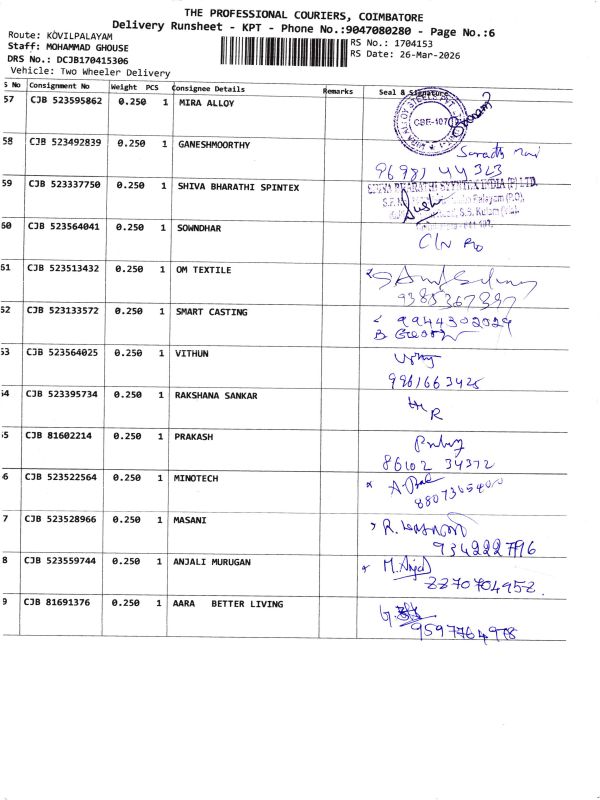 THE PROFESSIONAL COURIERS, COIMBATORE
Delivery Runsheet - KPT - Phone No.:9047080280 - Page No.:6
Route: KOVILPALAYAM
Staff: MOHAMMAD GHOUSE
DRS No.: DCJB170415306
Vehicle: Two Wheeler Delivery
RS No.: 1704153
RS Date: 26-Mar-2026
S No Consignment No Weight PCS Consignee Details Remarks Seal & Signature
57 CJB 523595862 0.250 1 MIRA ALLOY
CBE-107
58 CJB 523492839 0.250 1 GANESHMOORTHY
96981 44 323
59 CJB 523337750 0.250 1 SHIVA BHARATHI SPINTEX
SHIVA BHARATHI SPINTEX INDIA (P) LTD.
60 CJB 523564041 0.250 1 SOWNDHAR
61 CJB 523513432 0.250 1 OM TEXTILE
9385367397
62 CJB 523133572 0.250 1 SMART CASTING
9944302029
53 CJB 523564025 0.250 1 VITHUN
9961663425
54 CJB 523395734 0.250 1 RAKSHANA SANKAR
55 CJB 81602214 0.250 1 PRAKASH
86102 34372
6 CJB 523522564 0.250 1 MINOTECH
7 CJB 523528966 0.250 1 MASANI
8 CJB 523559744 0.250 1 ANJALI MURUGAN
9 CJB 81691376 0.250 1 AARA BETTER LIVING
9597764978